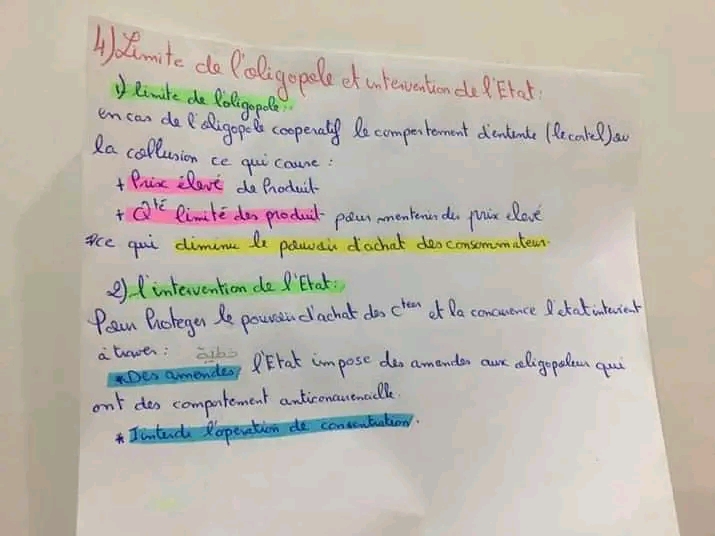 4) Limite de l'oligopole et intervention de l'Etat:
1) limite de l'oligopole:
en cas de l'oligopole cooperatif le comportement d'entente (le cartel) ou
la collusion ce qui cause :
+ Prix élevé de Produit
+ Qté limité des produit pour mentenir des prix elevé
⇒ce qui diminu le pouvoir d'achat des consommateur.
2) l'intervention de l'Etat:
Pour Proteger le pouvoir d'achat des Cteur et la concurence l'etat intervient
à traver : خطية
*Des amendes, l'Etat impose des amendes aux oligopoleur qui
ont des comportement anticoncurencielle.
* Iinterdi l'operation de consentration.